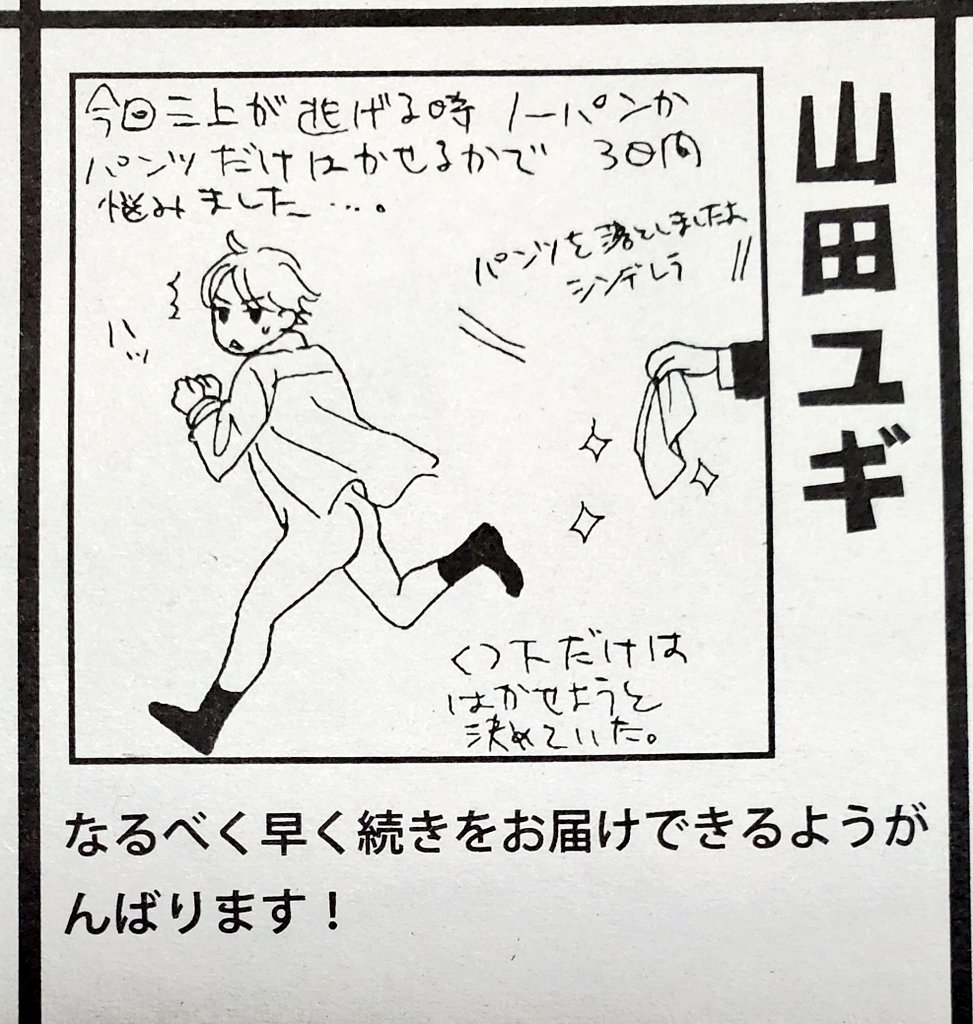 山田ユギ
今回三上が逃げる時ノーパンか
パンツだけはかせるかで3日間
悩みました…。
パンツを落としましたよ
シンデレラ
ハッ
くつ下だけは
はかせようと
決めていた。
なるべく早く続きをお届けできるようが
んばります！